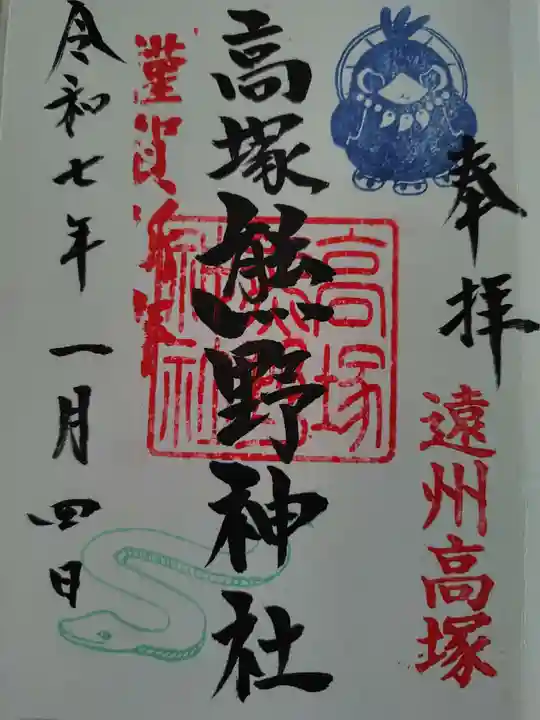 奉拝
遠州高塚
高塚熊野神社
高塚
熊野
神社
謹賀新年
令和七年一月四日